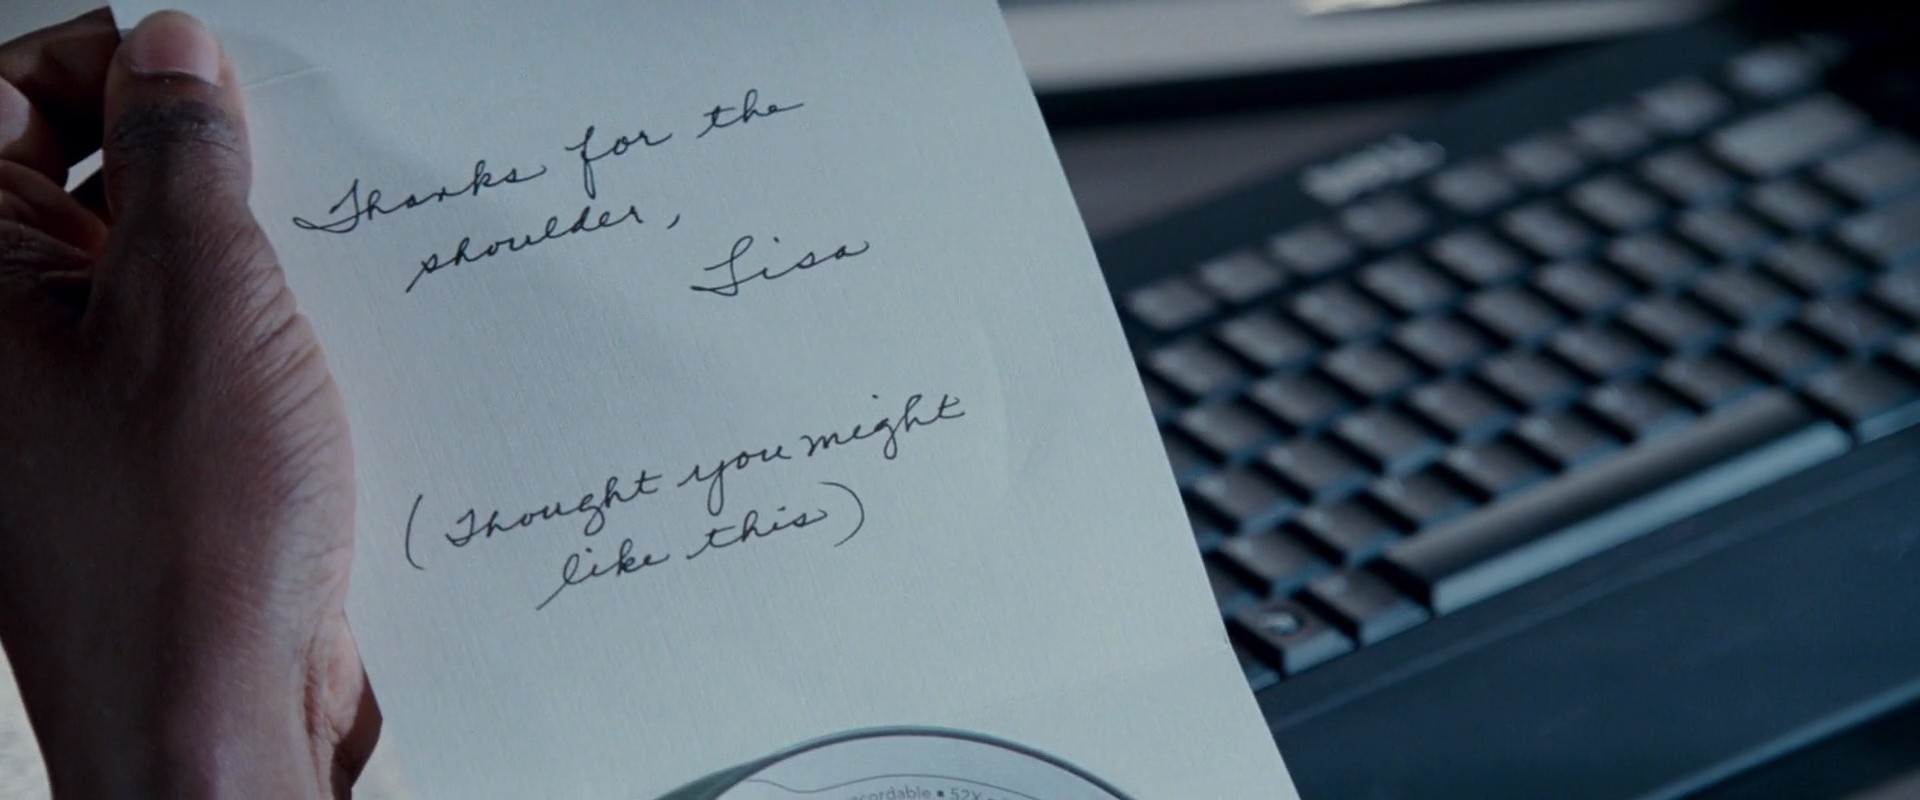 Thanks for the
shoulder,
Lisa
(Thought you might
like this)
ecordable • 52X